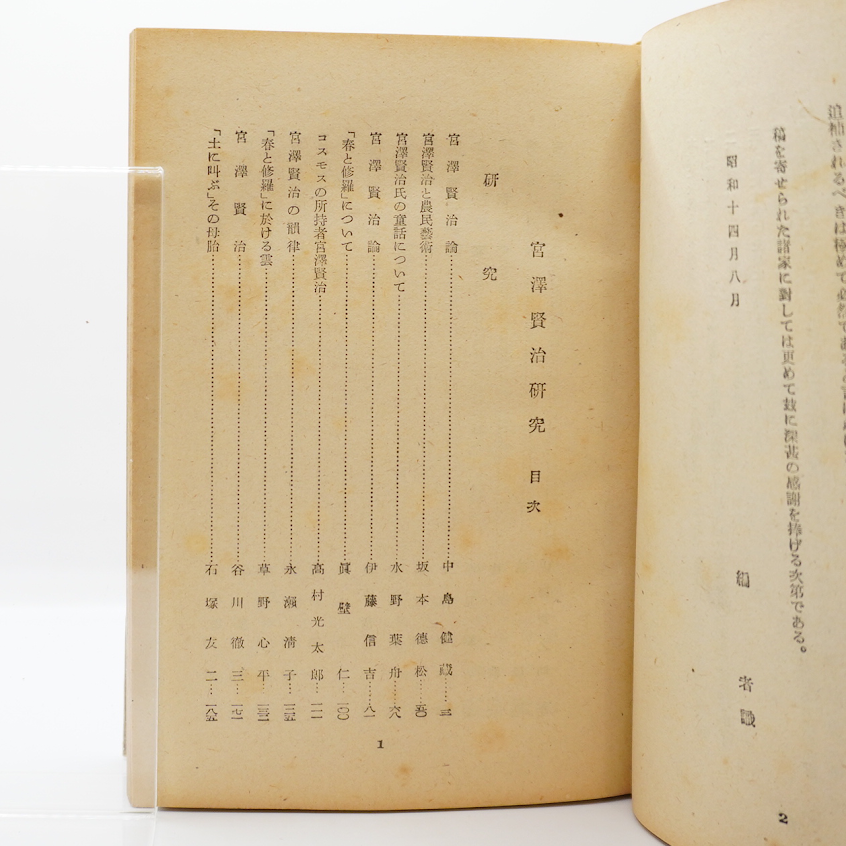 稿を寄せられた諸家に對しては更めて玆に深甚の感謝を捧げる次第である。
昭和十四月八月
編者識
2
宮澤賢治研究 目次
研究
宮澤賢治論……中島健藏……三
宮澤賢治と農民藝術……坂本德松……五〇
宮澤賢治氏の童話について……水野葉舟……六八
宮澤賢治論……伊藤信吉……八一
「春と修羅」について……眞壁仁……一〇〇
コスモスの所持者宮澤賢治……高村光太郎……一一一
宮澤賢治の韻律……永瀨淸子……一三五
「春と修羅」に於ける雲……草野心平……
宮澤賢治……谷川徹三……一七一
「土に叫ぶ」その母胎……石塚友二……一八五
1